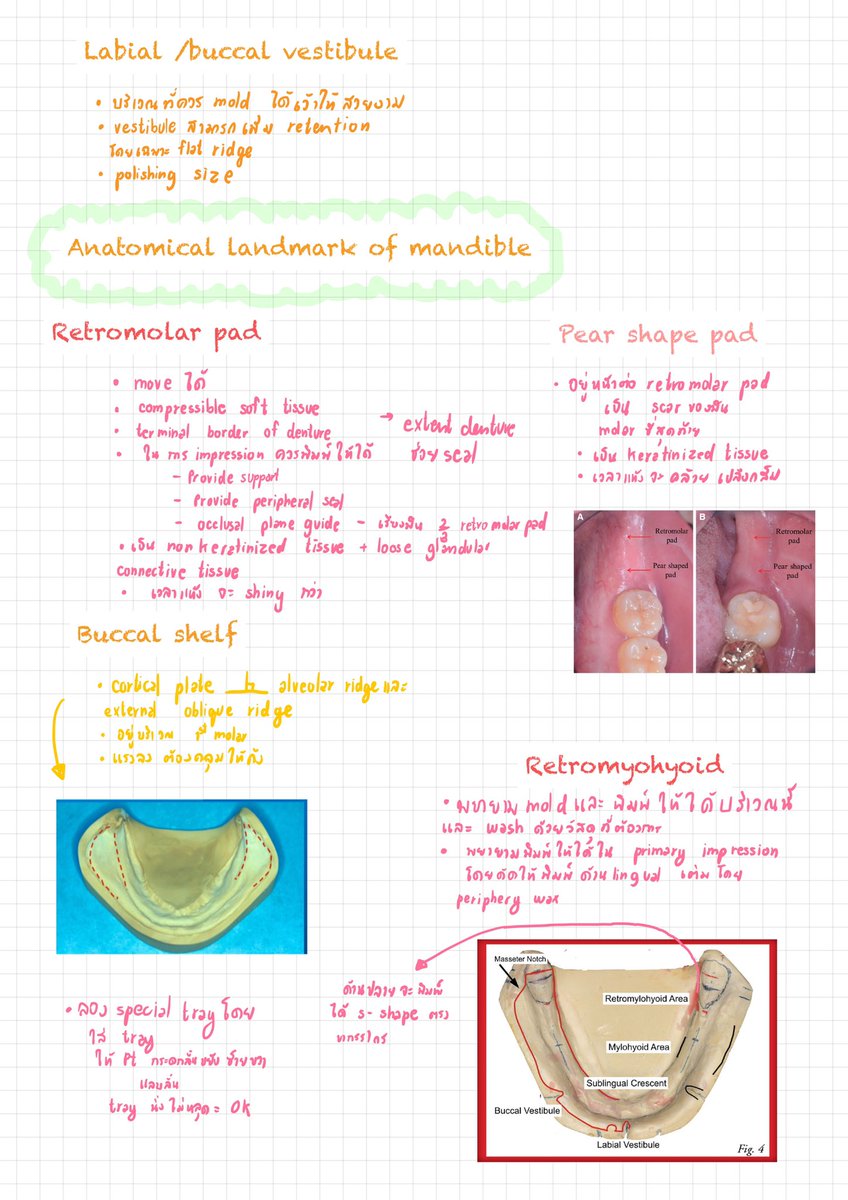 Labial /buccal vestibule
• บริเวณที่ควร mold ได้เว้าให้สวยงาม
• vestibule สามารถเพิ่ม retention
โดยเฉพาะ flat ridge
• polishing size
Anatomical landmark of mandible
Retromolar pad
• move ได้
• compressible soft tissue
• terminal border of denture → extent denture
ช่วย seal
• ในการ impression ควรพิมพ์ให้ได้
- Provide support
- Provide peripheral seal
- occlusal plane guide - เรียงฟัน 2/3 retromolar pad
• เป็น non keratinized tissue + loose glandular
connective tissue
• เวลาแห้ง จะ shiny กว่า
Pear shape pad
• อยู่หน้าต่อ retromolar pad
เป็น scar ของฟัน
molar ซี่สุดท้าย
• เป็น keratinized tissue
• เวลาแห้ง จะ คล้าย เปลือกส้ม
A
B
Retromolar
pad
Pear shaped
pad
Retromolar
pad
Pear shaped
pad
Buccal shelf
• cortical plate alveolar ridge และ
external oblique ridge
• อยู่บริเวณ molar
• แรงลง ต้องคลุมให้ถึง
Retromyohyoid
• พยายาม mold และ พิมพ์ ให้ได้บริเวณนี้
และ wash ด้วยวัสดุที่ต้องการ
• พยายามพิมพ์ให้ได้ใน primary impression
โดยดัดให้พิมพ์ด้าน lingual เติมโดย
periphery wax
ด้านปลายจะพิมพ์
ได้ s-shape ตรง
• ลอง special tray โดย
ใส่ tray
ให้ Pt กระดกลิ้นแตะ ซ้ายขวา
แลบลิ้น
tray นิ่ง ไม่หลุด = OK
Masseter Notch
Retromylohyoid Area
Mylohyoid Area
Sublingual Crescent
Buccal Vestibule
Labial Vestibule
Fig. 4